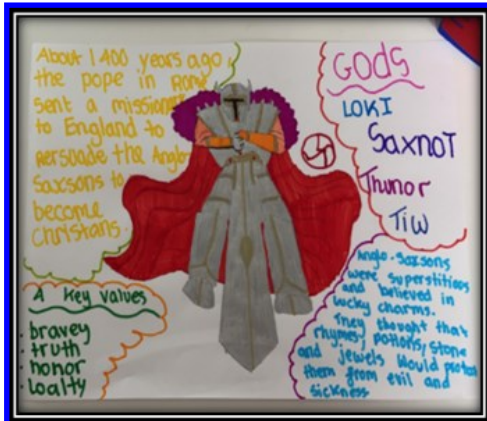 About 1400 years ago,
the pope in Rome
sent a missionary
to England to
persuade the Anglo-
Saxsons to
become
Christans.
GODS
LOKI
Saxnot
Thunor
Tiw
A Key Values
· bravey
· truth
· honor
· loalty
Anglo-Saxsons
were superstitious
and believed in
lucky charms.
They thought that
rhymes, potions, stone
and jewels would protect
them from evil and
sickness